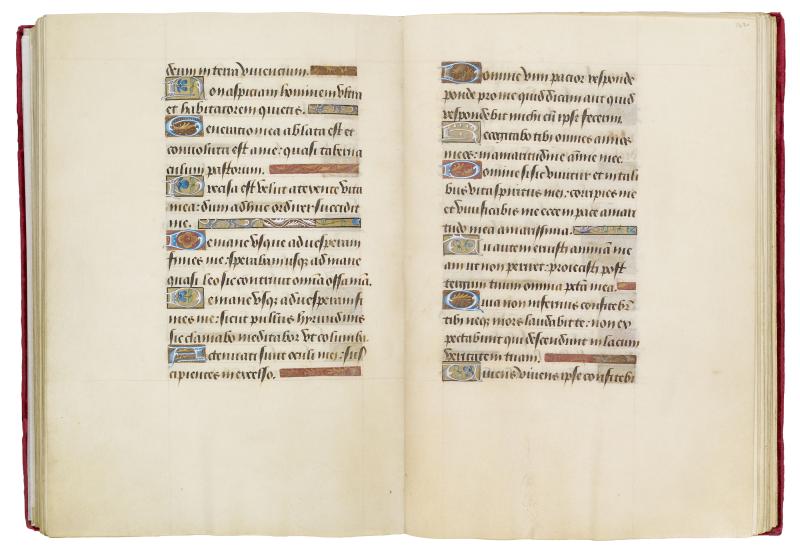 deum in terra viventium.
Non aspiciam hominem ultra
et habitatorem quietis.
Generatio mea ablata est et
convoluta est a me: quasi taberna
culum pastorum.
Precisa est velut a texente vita
mea: dum adhuc ordirer succidit
me.
De mane usque ad vesperam
finies me: sperabam usque ad mane
quasi leo sic contrivit omnia ossa mea.
De mane usque ad vesperam fi
nies me: sicut pullus hyrundinis
sic clamabo meditabor ut columba.
Attenuati sunt oculi mei: sus
cipientes in excelso.
Domine vim patior responde
ponde pro me quid dicam aut quid
respondebit michi cum ipse fecerim.
Recogitabo tibi omnes annos
meos: in amaritudine anime mee.
Domine si sic vivitur et in tali
bus vita spiritus mei: corripies me
et vivificabis me ecce in pace amari
tudo mea amarissima.
Tu autem eruisti animam me
am ut non periret: proiecisti post
tergum tuum omnia peccata mea.
Quia non infernus confitebitur
tibi neque mors laudabit te: non ex
pectabunt qui descendunt in lacum
veritatem tuam.
Vivens vivens ipse confitebi